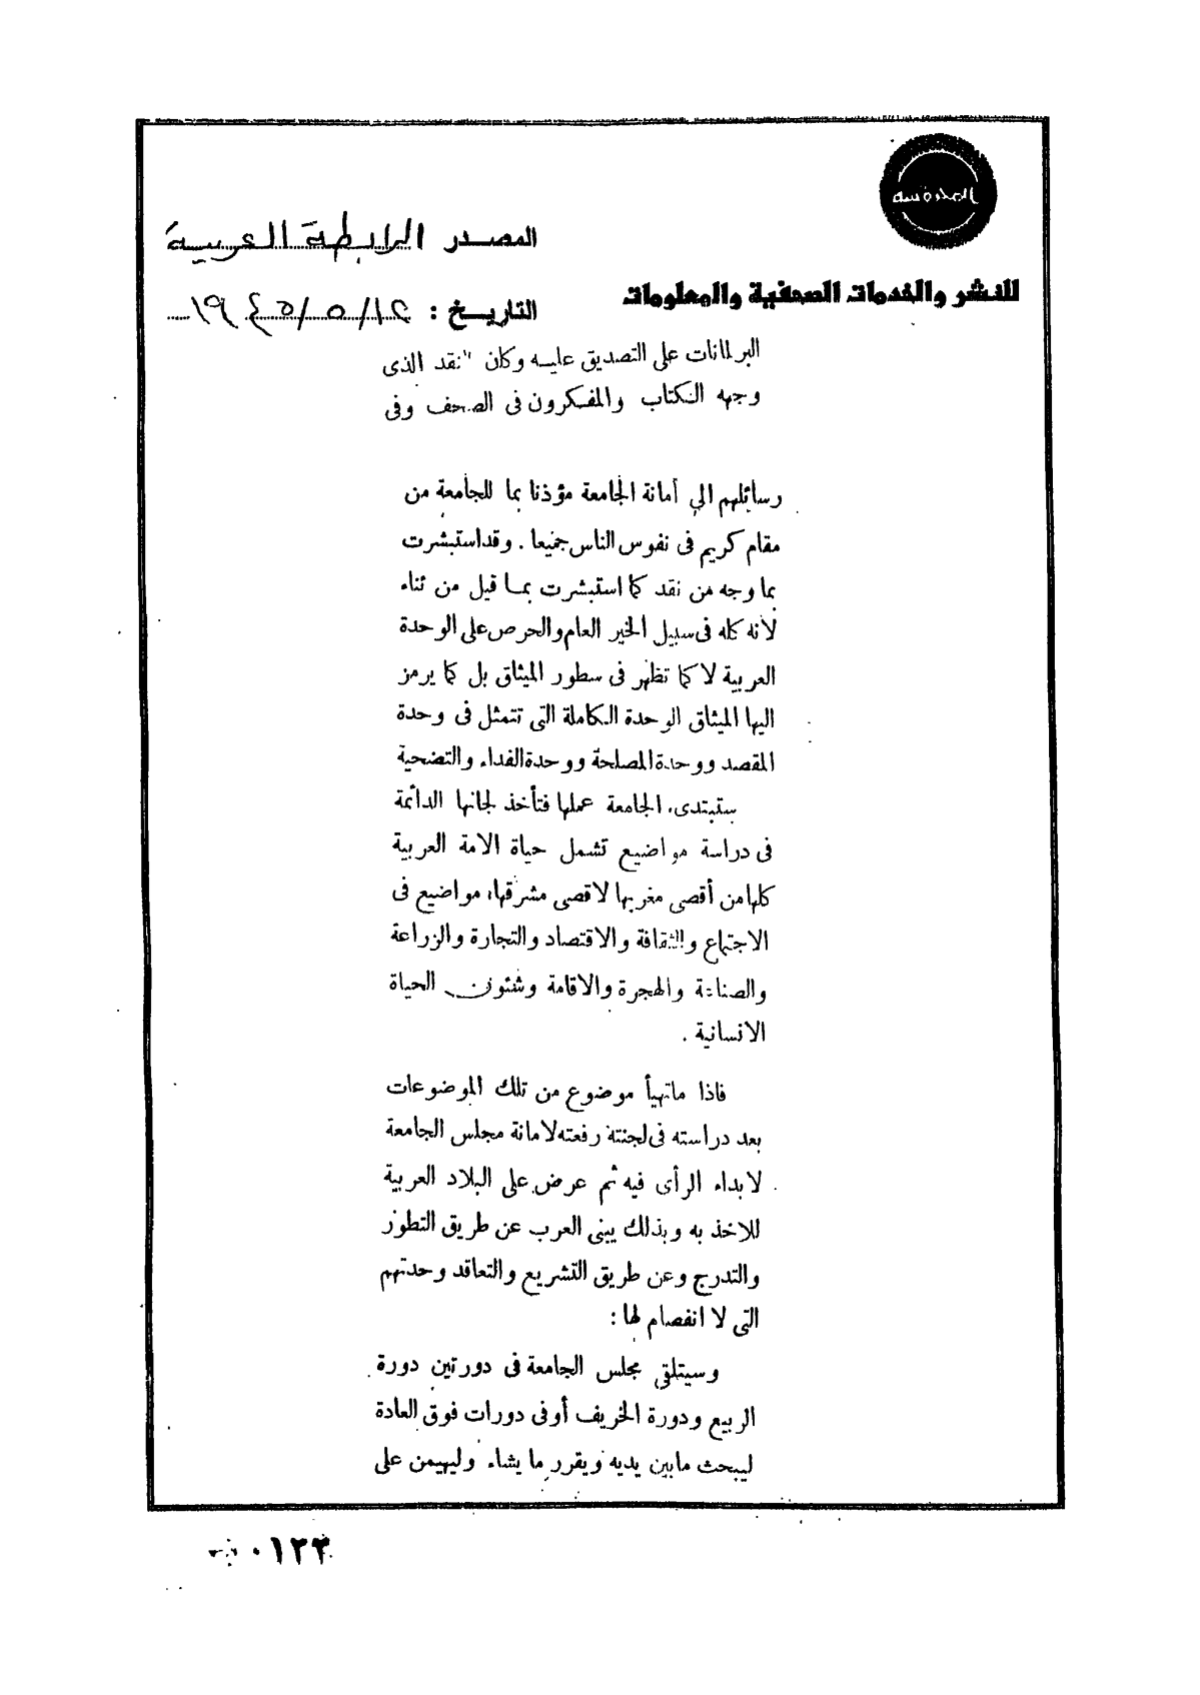 المحروسة
المصدر الرابطة العربية
للنشر والخدمات الصحفية والمعلومات
التاريخ : ١٢/٥/١٩٤٥
البرلمانات على التصديق عليه وكان النقد الذى
وجهه الكتاب والمفكرون فى الصحف وفى
رسائلهم الى أمانة الجامعة مؤذنا بما للجامعة من
مقام كريم فى نفوس الناس جميعا . وقد استبشرت
بما وجه من نقد كما استبشرت بما قيل من ثناء
لانه كله فى سبيل الخير العام والحرص على الوحدة
العربية لا كما تظهر فى سطور الميثاق بل كما يرمز
اليها الميثاق الوحدة الكاملة التى تتمثل فى وحدة
المقصد ووحدة المصلحة ووحدة الفداء والتضحية
ستبتدىء الجامعة عملها فتأخذ لجانها الدائمة
فى دراسة مواضيع تشمل حياة الامة العربية
كلها من أقصى مغربها لاقصى مشرقها، مواضيع فى
الاجتماع والثقافة والاقتصاد والتجارة والزراعة
والصناعة والهجرة والاقامة وشئون الحياة
الانسانية .
فاذا ماتهيأ موضوع من تلك الموضوعات
بعد دراسته فى لجنته رفعته لامانة مجلس الجامعة
لابداء الرأى فيه ثم عرض على البلاد العربية
للاخذ به وبذلك يبنى العرب عن طريق التطور
والتدرج وعن طريق التشريع والتعاقد وحدتهم
التى لا انفصام لها :
وسيتلقى مجلس الجامعة فى دورتين دورة
الربيع ودورة الخريف أوفى دورات فوق العادة
ليبحث مابين يديه ويقرر ما يشاء وليهيمن على
٠١٢٣